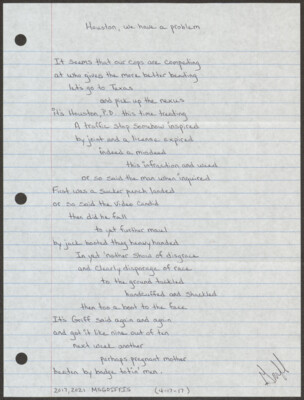 Houston, we have a problem
It seems that our cops are competing
at who gives the more better beating
lets go to Texas
and pick up the nexus
it's Houston, P.D. this time treating
A traffic stop somehow inspired
by joint and a license expired
indeed a misdeed
this infraction and weed
or so said the man when inquired
First was a sucker punch landed
or so said the video candid
then did he fall
to yet further maul
by jack booted thug heavy handed
In yet 'nother show of disgrace
and clearly disparage of race
to the ground tackled
handcuffed and shackled
then too a beat to the face
It's Griff said again and again
and got it like nine out of ten
next week another
perhaps pregnant mother
beaten by badge totin' men.
(4-17-17)